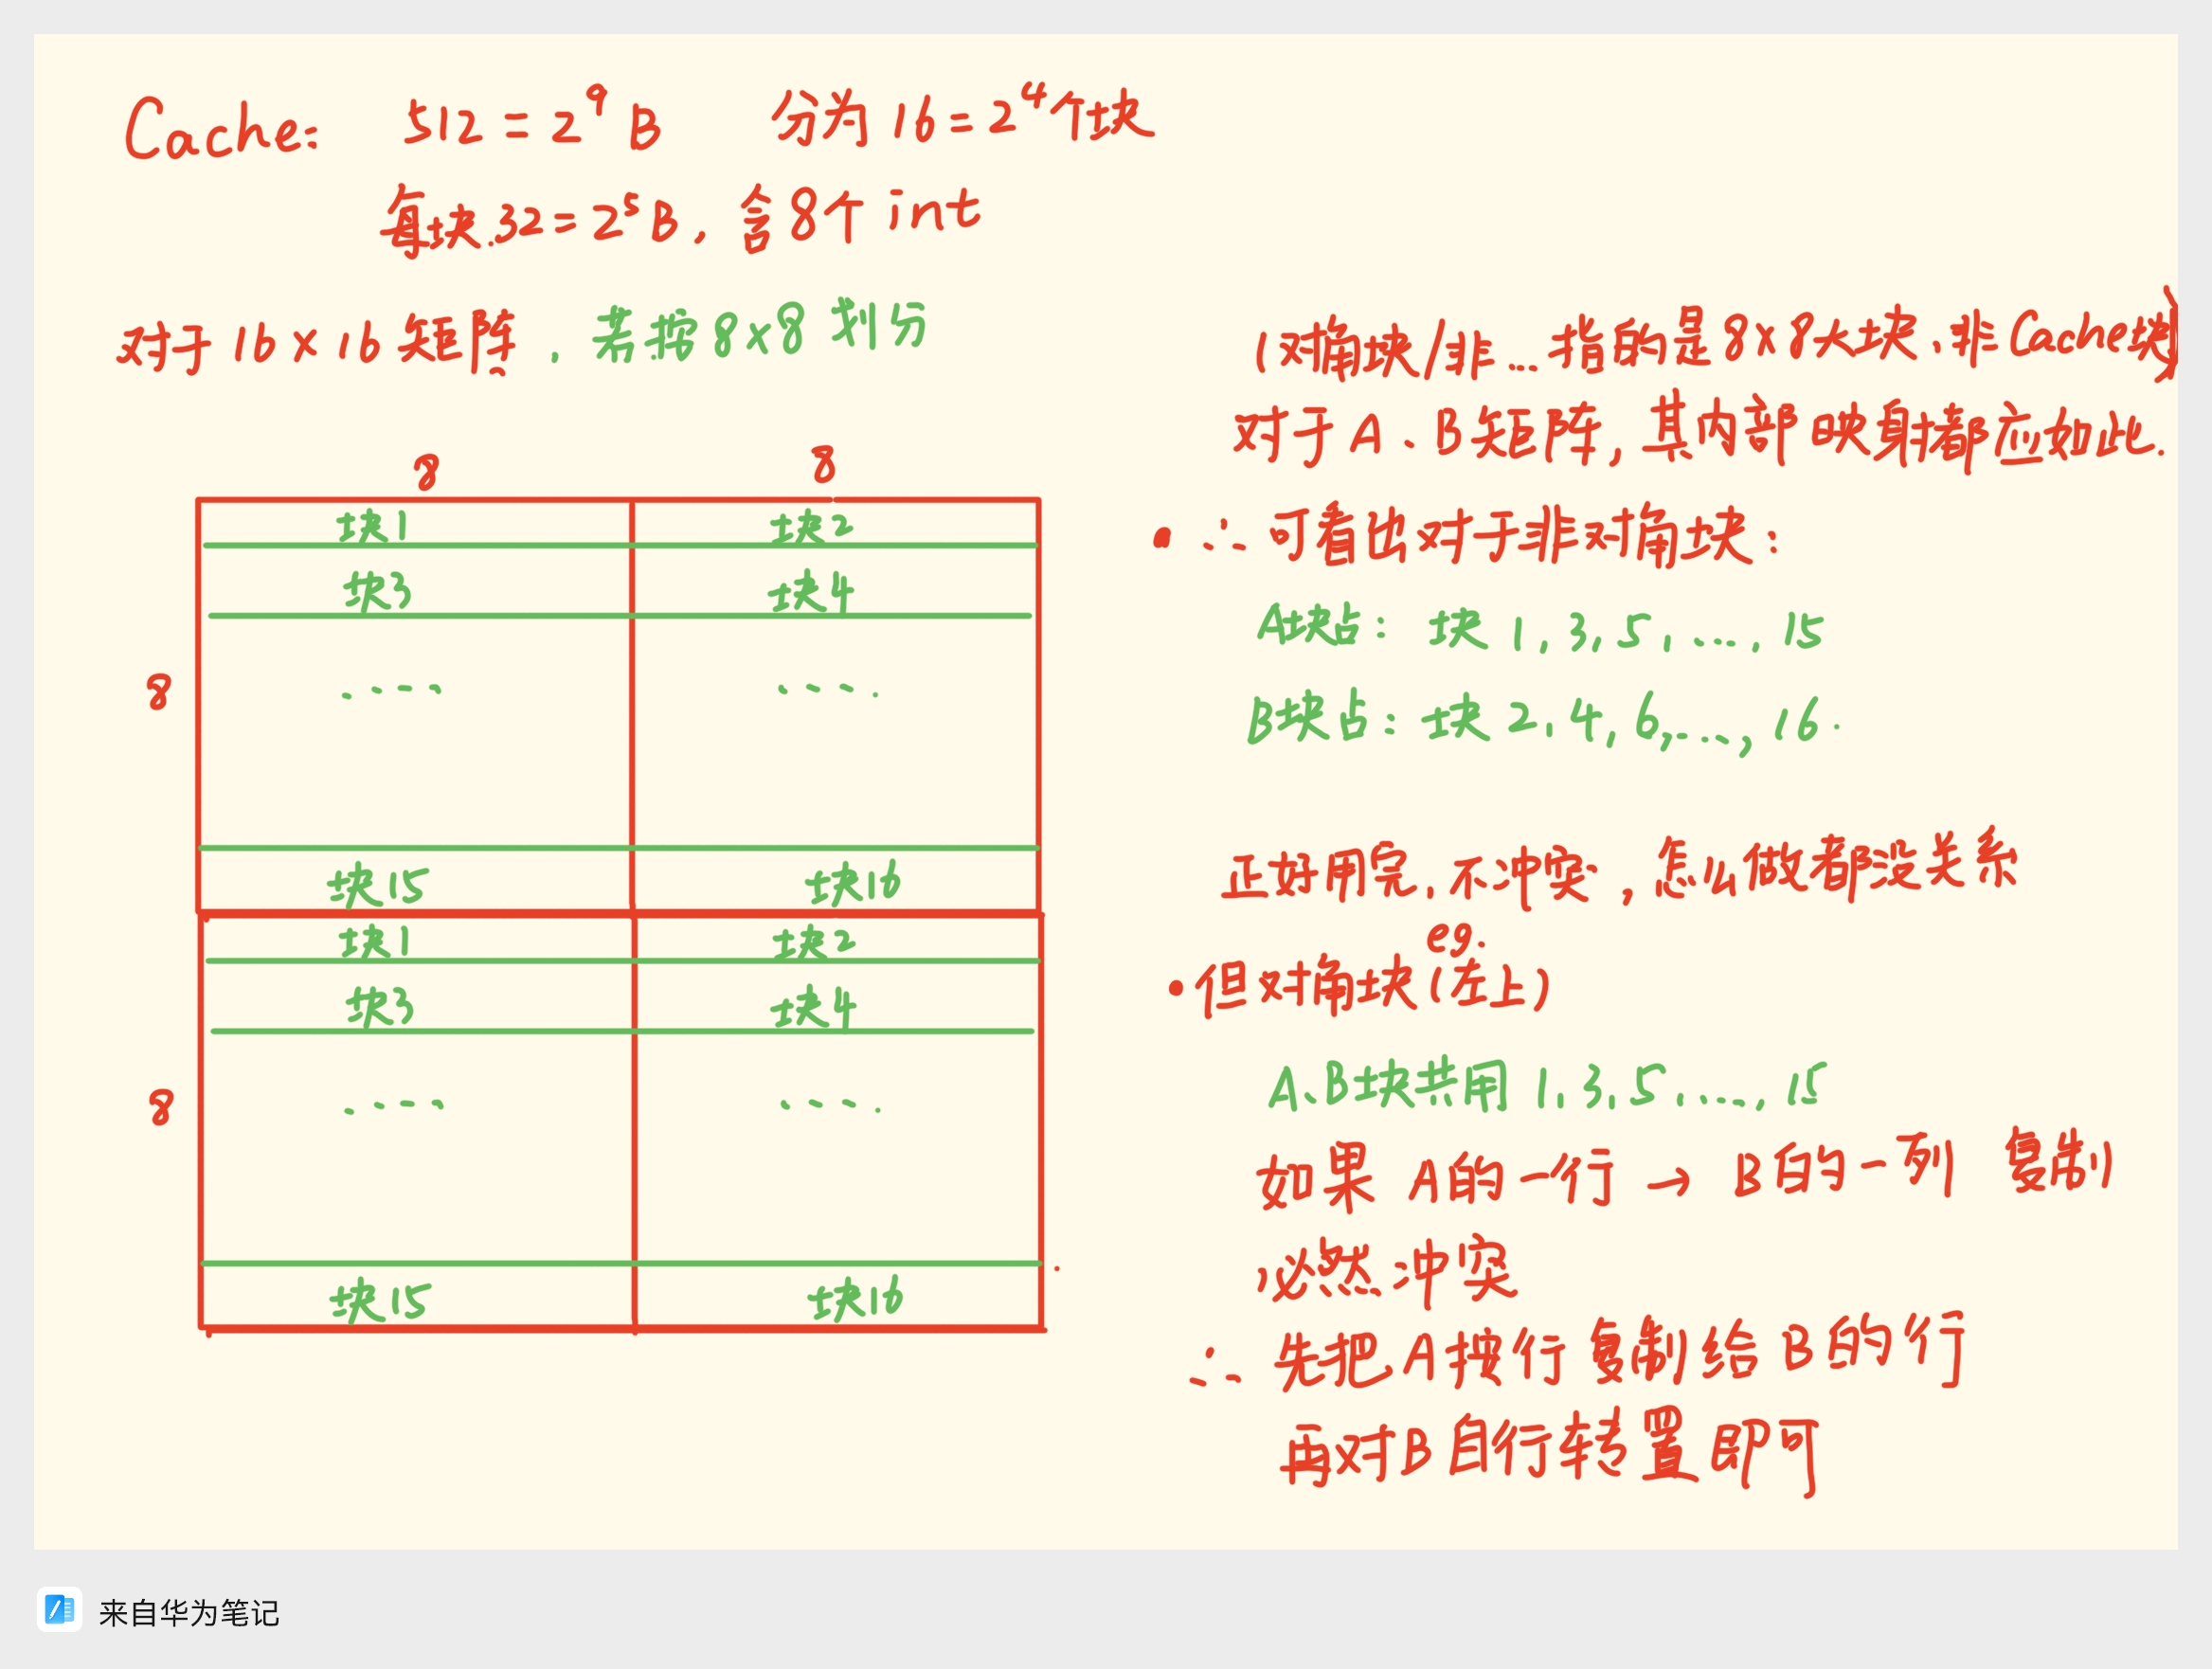 Cache: 512 = 2⁹ B 分为 16 = 2⁴个块
每块 32 = 2⁵B, 含8个 int
对于 16×16 矩阵, 若按 8×8 划分
(对角块/非...指的是 8×8大块、非Cache块)
对于 A、B矩阵, 其内部映射都应如此.
8 8
8
块1 块2
块3 块4
.... ....
块15 块16
8
块1 块2
块3 块4
.... ....
块15 块16
• ∴ 可看出对于非对角块:
A块占: 块 1, 3, 5, ..., 15
B块占: 块 2, 4, 6, ..., 16.
正好用完, 不冲突, 怎么做都没关系
• 但对角块 eg. (左上)
A、B块共用 1, 3, 5, ..., 15
如果 A的一行 → B的一列 复制
必然冲突
∴ 先把A按行复制给B的行
再对B自行转置即可
来自华为笔记